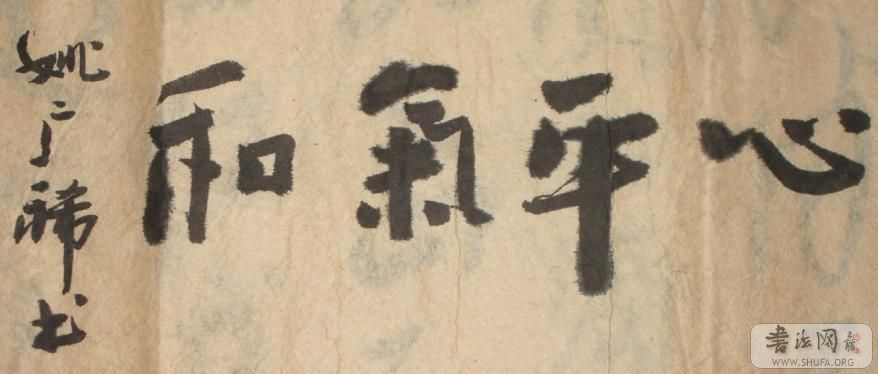 心平氣和
姚广稀书
書法网
WWW.SHUFA.ORG